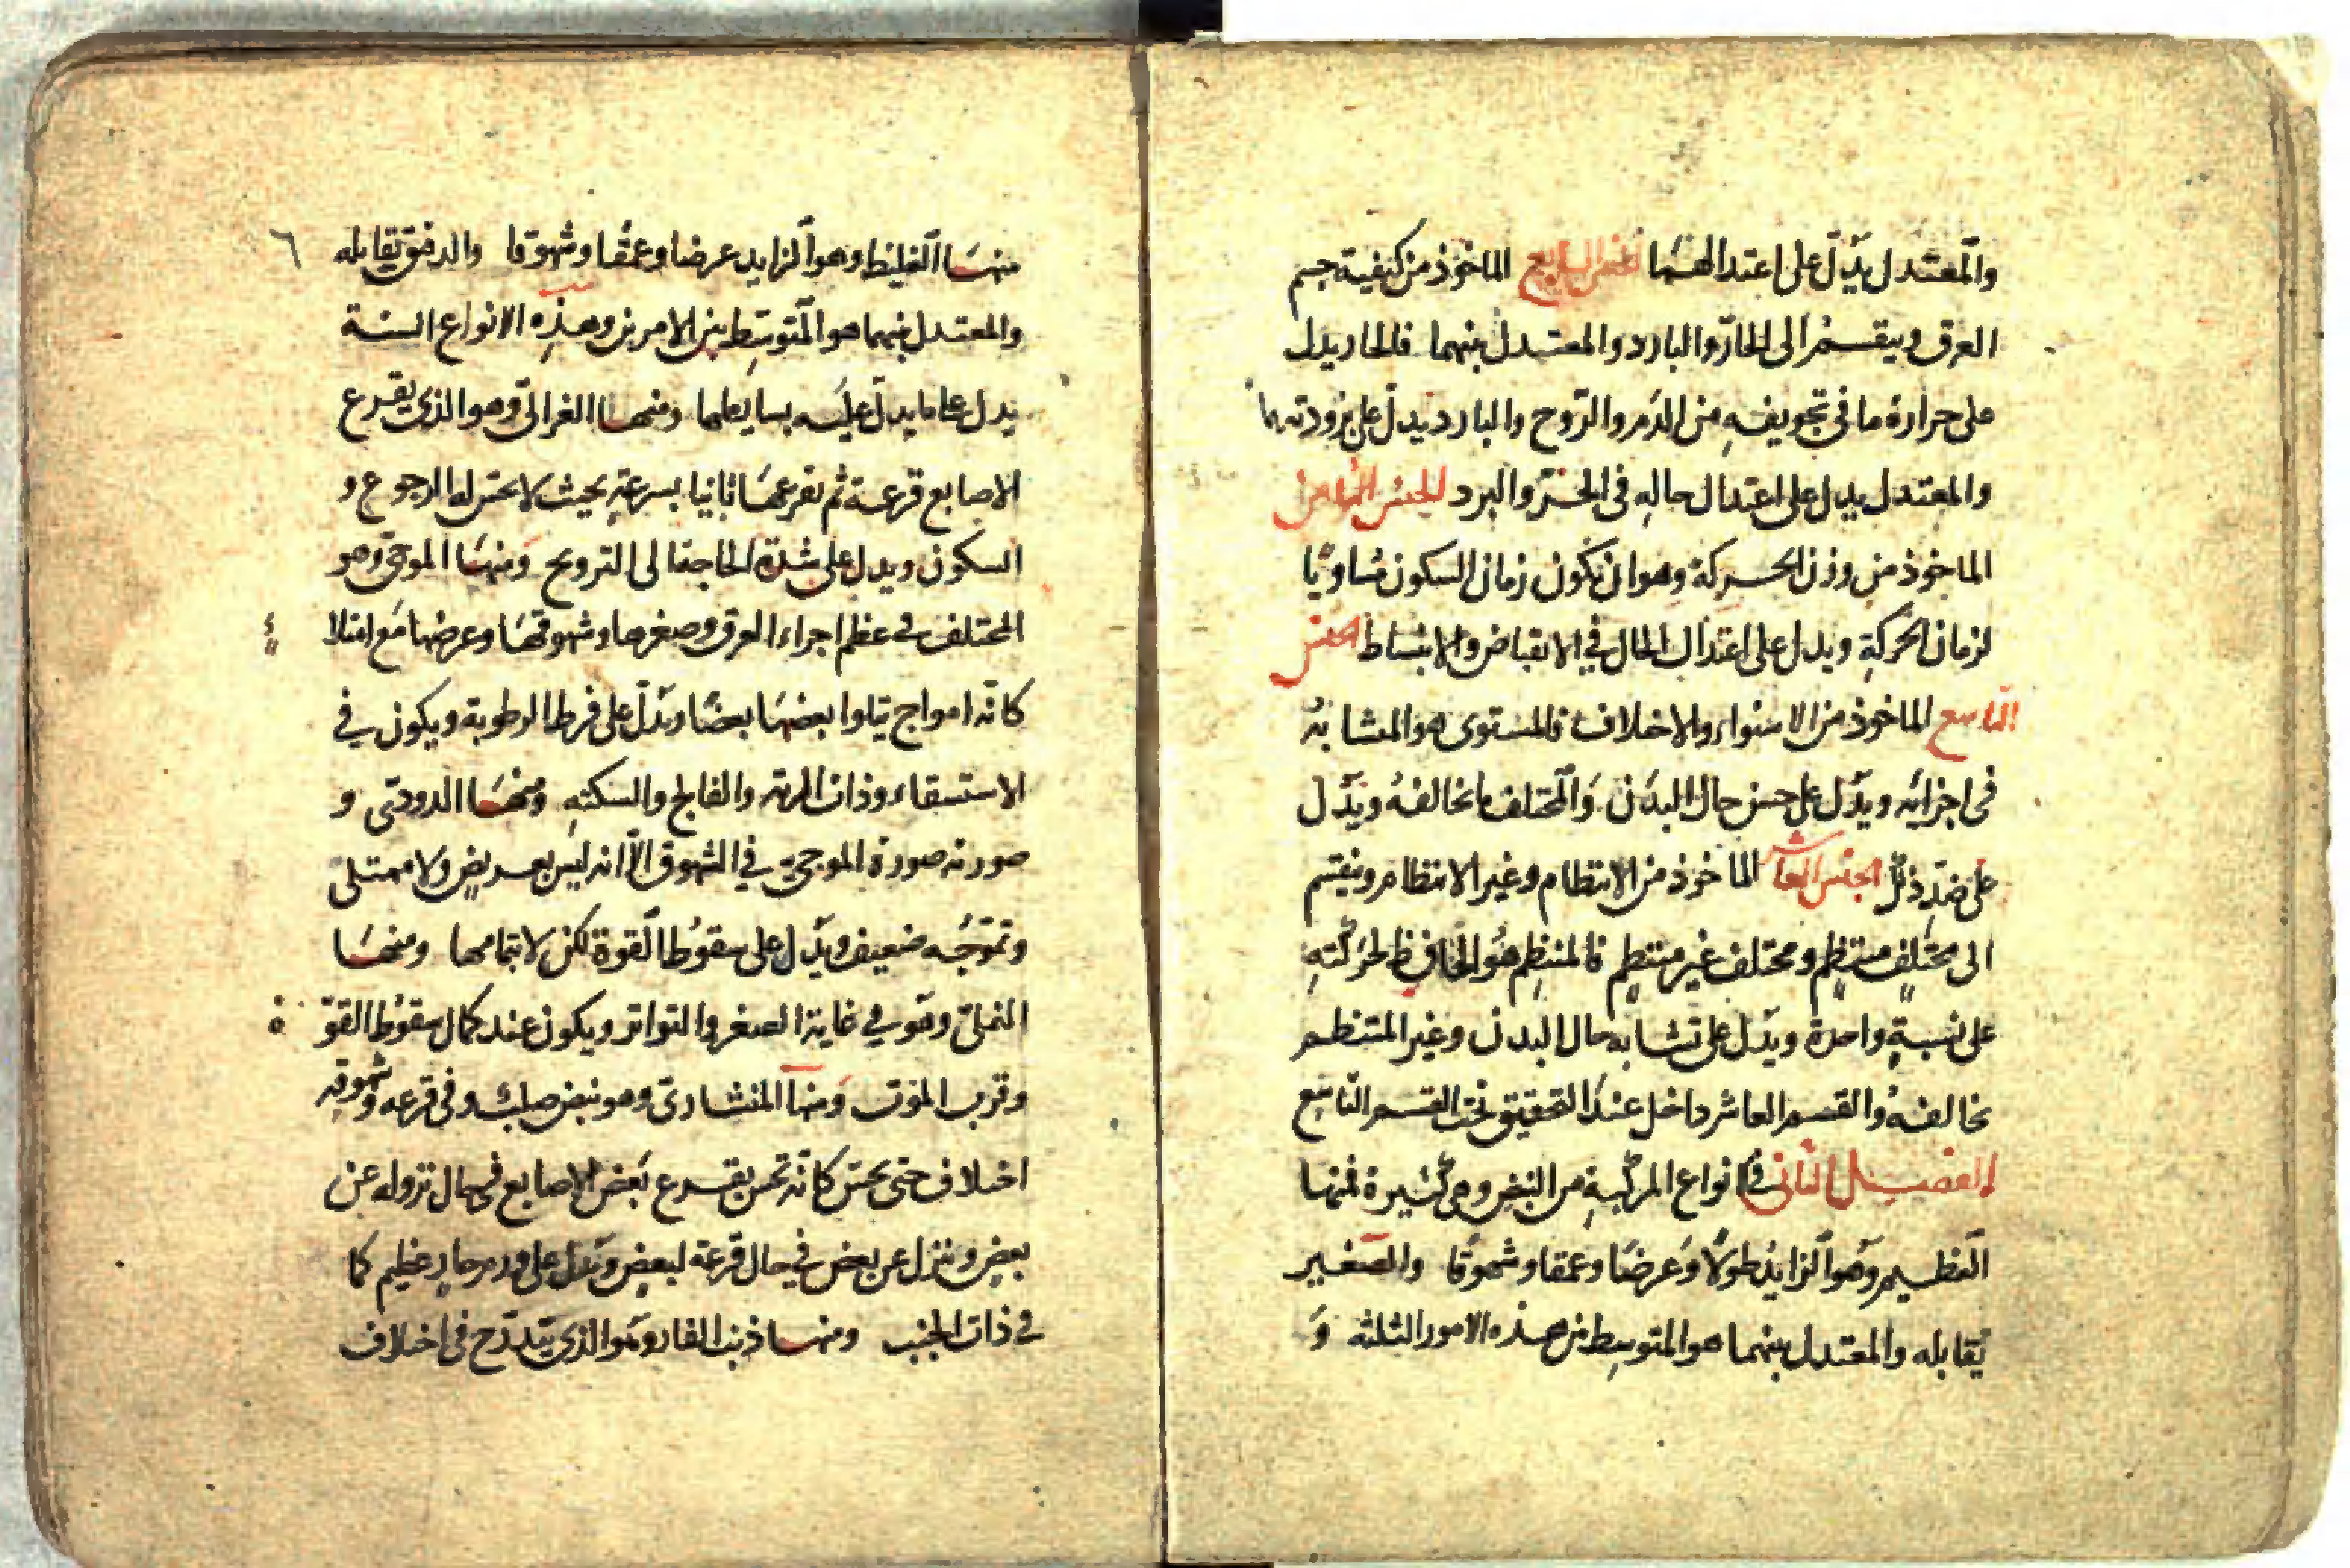 والمعتدل يدّل على اعتدالهما الجنس السابع الماخوذ من كيفية جسم
العرق وينقسم الى الحارّ والبارد والمعتدل بينهما فالحار يدل
على حرارة ما فى تجويفه من الدم والرّوح والبارد يدلّ على برودتهما
والمعتدل يدل على اعتدال حاله فى الحرّ والبرد الجنس الثامن
الماخوذ من وزن الحركة وهو ان يكون زمان السكون مساويًا
لزمان الحركة ويدل على اعتدال الحال في الانقباض والانبساط الجنس
التاسع الماخوذ من الاستواء والاختلاف فالمستوى هو المتشابهُ
فى اجزائه ويدّل على حسن حال البدَن وَالمختلف ما يخالفهُ ويدّل
على ضدّ ذلك الجنس العاشر الماخوذ من الانتظام وغير الانتظام وينقسم
الى مختلفٍ منتظمٍ ومختلف غير منتظمٍ فالمنتظِم هُو الحافِظ لحرَكَتهِ
على نسبةٍ واحدة ويدّل على تشابه حال البدن وغير المنتظم
يخالفهُ والقسم العاشر داخل عندَ التحقيق تحت القسم التاسع
الفصل الثانى فى انواع المركّبةِ من النبض وهى كثيرة فمنها
العظيم وهُو الزايد طولًا وَعرضًا وعمقا وشهوقًا والصّغير
يُقابله والمعتدل بينهما هو المتوسِط من هذه الامور الثلثه وَ
٦
منهَا الغليظ وهو الزايد عرضا وعمقًا وشهوقا والدقيق يُقابله
والمعتدل بينهما هو المتوسِط بين الامرين وهذِه الانواع الستة
يدل على ما يدلّ عليَه بسايطها ومنها الغزالىّ وهو الذى يقرع
الاصابع قرعة ثم يقرعهَا ثانيا بسرعةٍ بحيث لا يحسّ له الرجوع و
السكون ويدل على شدّة الحاجة الى الترويح وَمنهَا الموجىّ وهو
المختلف فے عظم اجزاء العرق وصغرها وشهوقهَا وعرضها مَع امتلا
ء
كانّه امواج يتلوا بعضهَا بعضًا ويدّل على فرط الرطوبة ويكون في
الاستسقاء وذات الرئه والفالج والسكتهِ ومنهَا الدودىّ و
صورته صورة الموجىّ في الشهوق الّا انه ليس بعريضٍ ولا ممتلئ
وتموّجُه ضعيف ويدّل على سقوُط القوة لكن لا بتمامها ومنهَا
النملىّ وهَو في غاية الصغر والتواتر ويكون عند كمال سقوُط القوّ
ة
وقرب الموت وَمنها المنشارىّ وهو نبض صلب وفى قرعه وشهوقه
اختلاف حتى يحسّ كانّه يقرع بَعض الاصابع فى حال نزوله عن
بعضٍ وينزل عن بعض في حال قرعهَ لبعضٍ ويَدل على ورمٍ حارٍ عظيم كما
فے ذات الجنب ومنها ذنب الفار وهَو الذى يتدرّج فى اختلاف